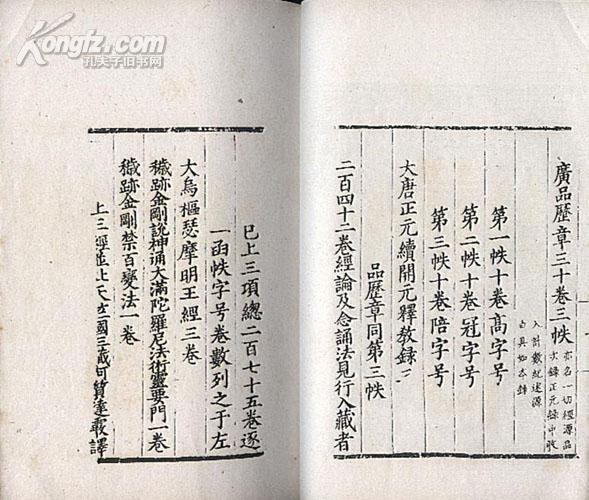 Kongfz.com
孔夫子旧书网
廣品歷章三十卷三帙
亦名一切經源品
次錄正元錄中收
入計數紀述源
由具如本錄
第一帙十卷高字号
第二帙十卷冠字号
第三帙十卷陪字号
大唐正元續開元釋教錄三
品歷章同第三帙
二百四十二卷經論及念誦法見行入藏者
已上三項總二百七十五卷逐
一函帙字号卷數列之于左
大烏樞瑟摩明王經三卷
穢跡金剛說神誦大滿陀羅尼法術靈要門一卷
穢跡金剛禁百變法一卷
上三經並北天竺國三藏阿質達霰譯